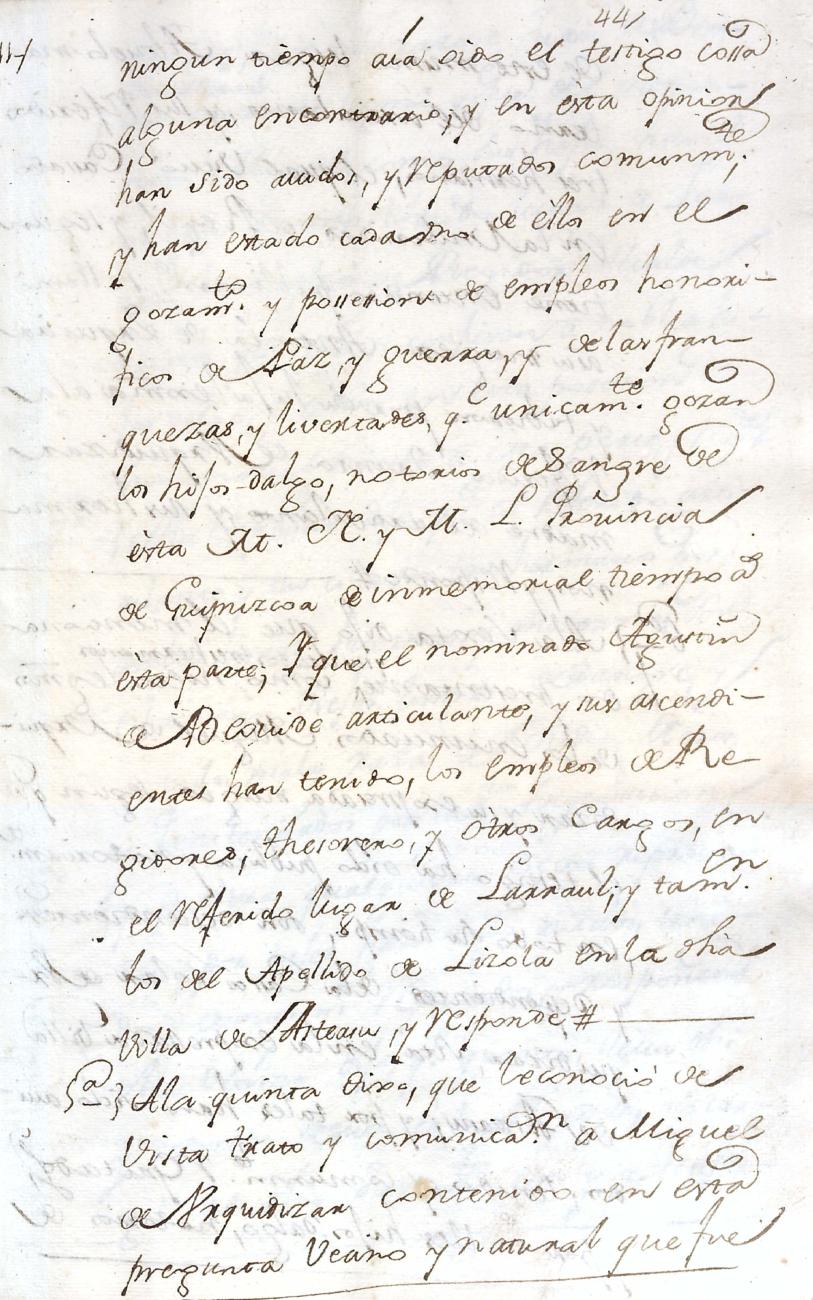 44/
ningun tiempo avia oido el testigo cossa
alguna encontrario, y en èsta opinion
han sido avidos, y Reputados comunmte,
y han estado cada vno de èllos en el
gozamto. y possession de empleos honori-
ficos de Paz, y guerra, y de las fran-
quezas, y livertades, qe unicamte. gozan
los hijos-dalgo, notorios de Sangre de
èsta M. N. y M. L. Provincia
de Guipuzcoa de inmemorial tiempo a
èsta parte; Y que el nominado Agustin
de articulante, y sus ascendi-
entes han tenido, los empleos de Re-
gidores, thesorero, y otros Cargos, en
el Referido lugar de Larraul; y tamen.
los del Apellido de Lizola en la dha
Villa de Asteasu, y Responde #
5a A la quinta dixo, que le conociò de
Vista trato y comunican. a Miguel
de Vrquidizar contenido en esta
pregunta Vecino y natural que fue